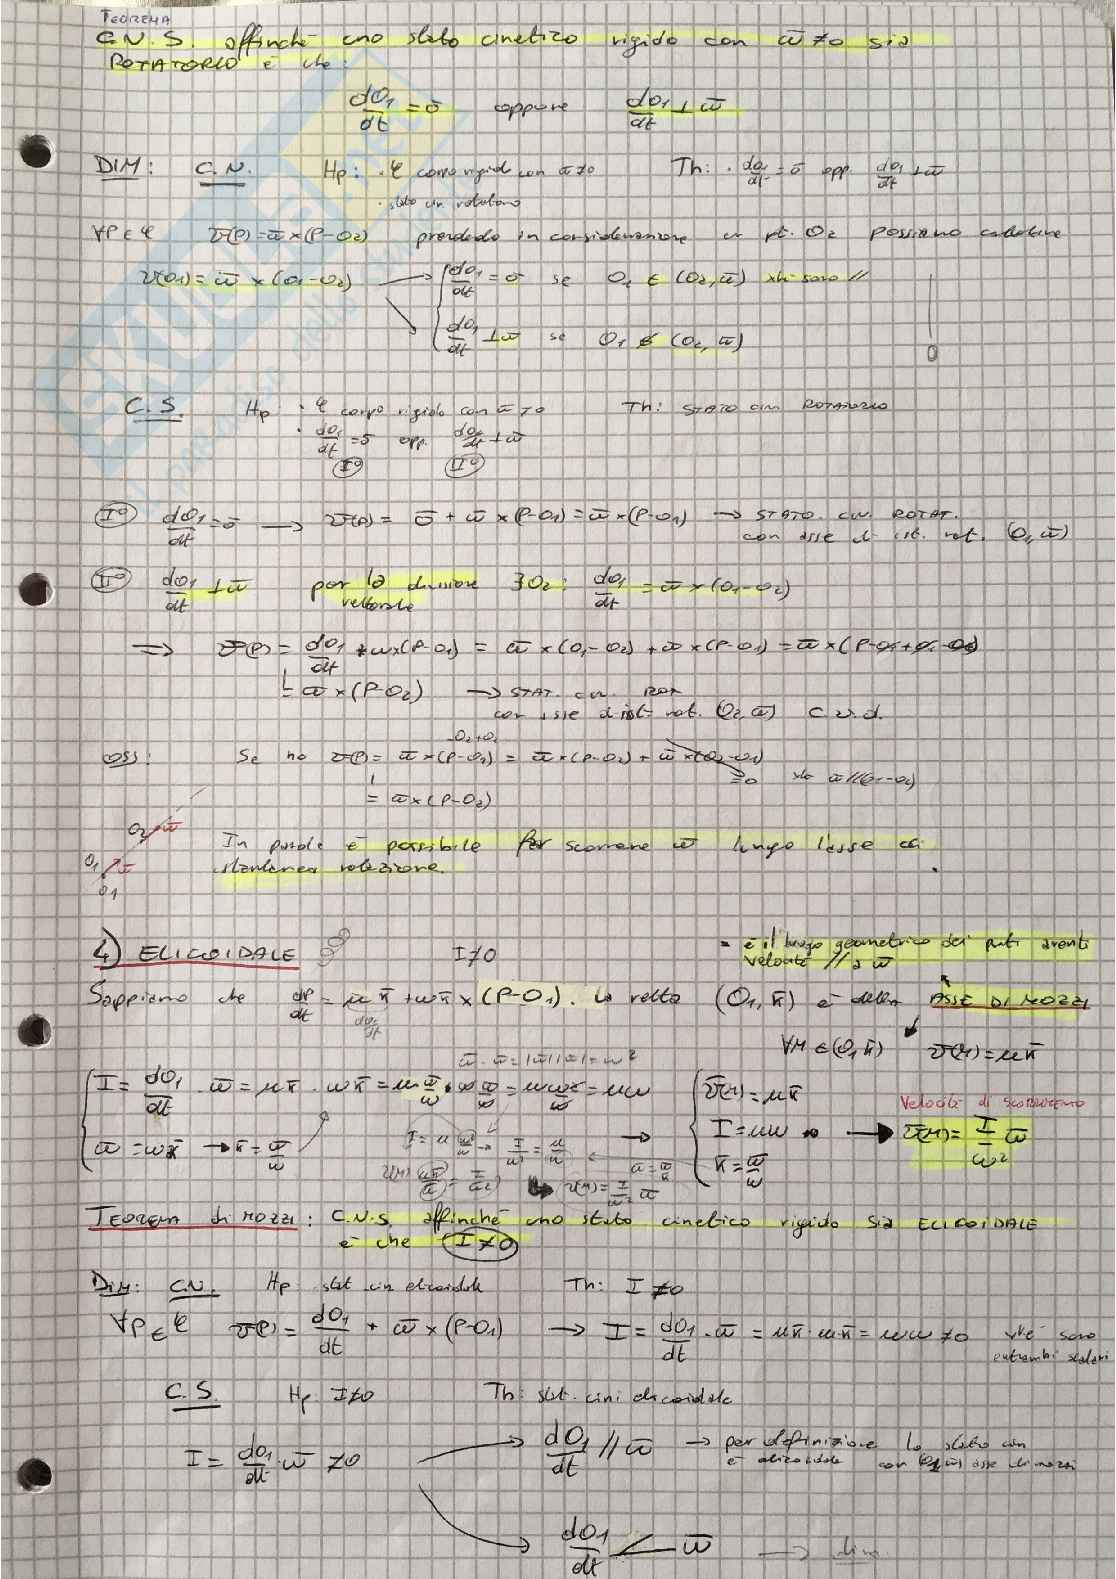 TEOREMA
C.N.S. affinché uno stato cinetico rigido con ω̄ ≠ 0 sia
ROTATORIO è che:
dO₁/dt = ō oppure dO₁/dt ⊥ ω̄
DIM: C.N. Hp: · 𝒞 corpo rigido con ω̄ ≠ 0 Th: · dO₁/dt = ō opp. dO₁/dt ⊥ ω̄
· stato cin rotatorio
∀P ∈ 𝒞 v̄(P) = ω̄ × (P-O₂) prendendo in considerazione un pt. O₂ possiamo
v̄(O₁) = ω̄ × (O₁-O₂) dO₁/dt = ō se O₁ ∈ (O₂, ω̄) xké sono //
dO₁/dt ⊥ ω̄ se O₁ ∉ (O₂, ω̄)
C.S. Hp: · 𝒞 corpo rigido con ω̄ ≠ 0 Th: STATO cin ROTATORIO
· dO₁/dt = ō opp. dO₁/dt ⊥ ω̄
I° II°
I° dO₁/dt = ō → v̄(P) = ō + ω̄ × (P-O₁) = ω̄ × (P-O₁) → STATO. cin. ROTAT.
con asse di ist. rot. (O₁, ω̄)
II° dO₁/dt ⊥ ω̄ per la divisione ∃ O₂: dO₁/dt = ω̄ × (O₁-O₂)
vettoriale
⇒ v̄(P) = dO₁/dt + ω × (P-O₁) = ω̄ × (O₁-O₂) + ω̄ × (P-O₁) = ω̄ × (P-O₁+O₁-O₂)
= ω̄ × (P-O₂) → STAT. cin. ROT
con asse di ist. rot. (O₂, ω̄) c.v.d.
-O₂+O₂
OSS: Se ho v̄(P) = ω̄ × (P-O₁) = ω̄ × (P-O₂) + ω̄ × (O₂-O₁)
= 0 xké ω̄ // (O₁-O₂)
= ω̄ × (P-O₂)
O₂ ω̄
O₁ ω̄
O₁
In parole è possibile far scorrere ω̄ lungo l'asse di
istantanea rotazione.
4) ELICOIDALE I ≠ 0
= è il luogo geometrico dei punti aventi
velocità // a ω̄
Sappiamo che dP/dt = μ k̄ + ω k̄ × (P-O₁). la retta (O₁, k̄) è detta ASSE DI MOZZI
dO₁/dt
∀M ∈ (O₁ k̄) v̄(M) = μ k̄
ω̄ · ω̄ = |ω̄| |ω̄| = ω²
I = dO₁/dt · ω̄ = μ k̄ · ω k̄ = μ ω̄/ω · ω ω̄/ω = μ ω ω²/ω² = μω
v̄(M) = μ k̄
Velocità di scorrimento
ω̄ = ω k̄ → k̄ = ω̄/ω
I = μω → v̄(M) = I/ω² ω̄
k̄ = ω̄/ω
I/ω² = μ/ω
v̄(M) = I/ω² ω̄
TEOREMA di MOZZI: C.N.S. affinché uno stato cinetico rigido sia ELICOIDALE
è che I ≠ 0
DIM: C.N. Hp: stat. cin elicoidale Th: I ≠ 0
∀P ∈ 𝒞 v̄(P) = dO₁/dt + ω̄ × (P-O₁) → I = dO₁/dt · ω̄ = μ k̄ · ω k̄ = μω ≠ 0 xké sono
entrambi scalari
C.S. Hp. I ≠ 0 Th: stat. cin. elicoidale
I = dO₁/dt · ω̄ ≠ 0
dO₁/dt // ω̄ → per definizione lo stato cin
è elicoidale con (O₁, ω̄) asse di mozzi
dO₁/dt ∠ ω̄ → dim